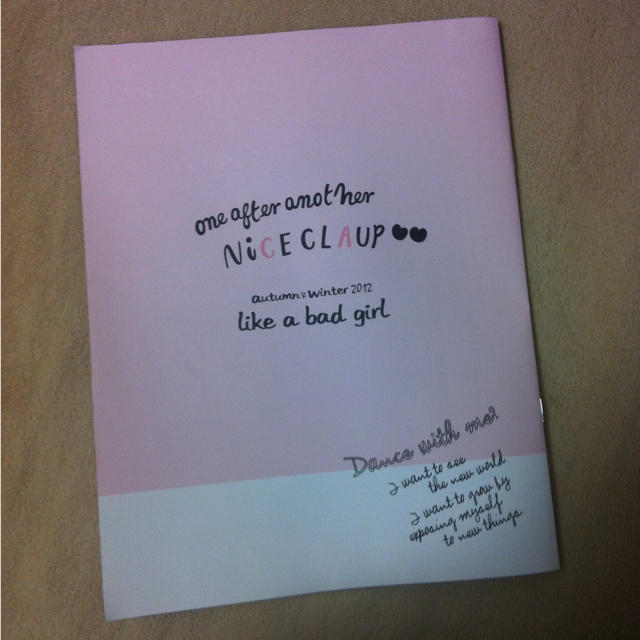 one after another
NiCE CLAUP
autumn & winter 2012
like a bad girl
Dance with me?
I want to see
the new world
I want to grow by
exposing myself
to new things.